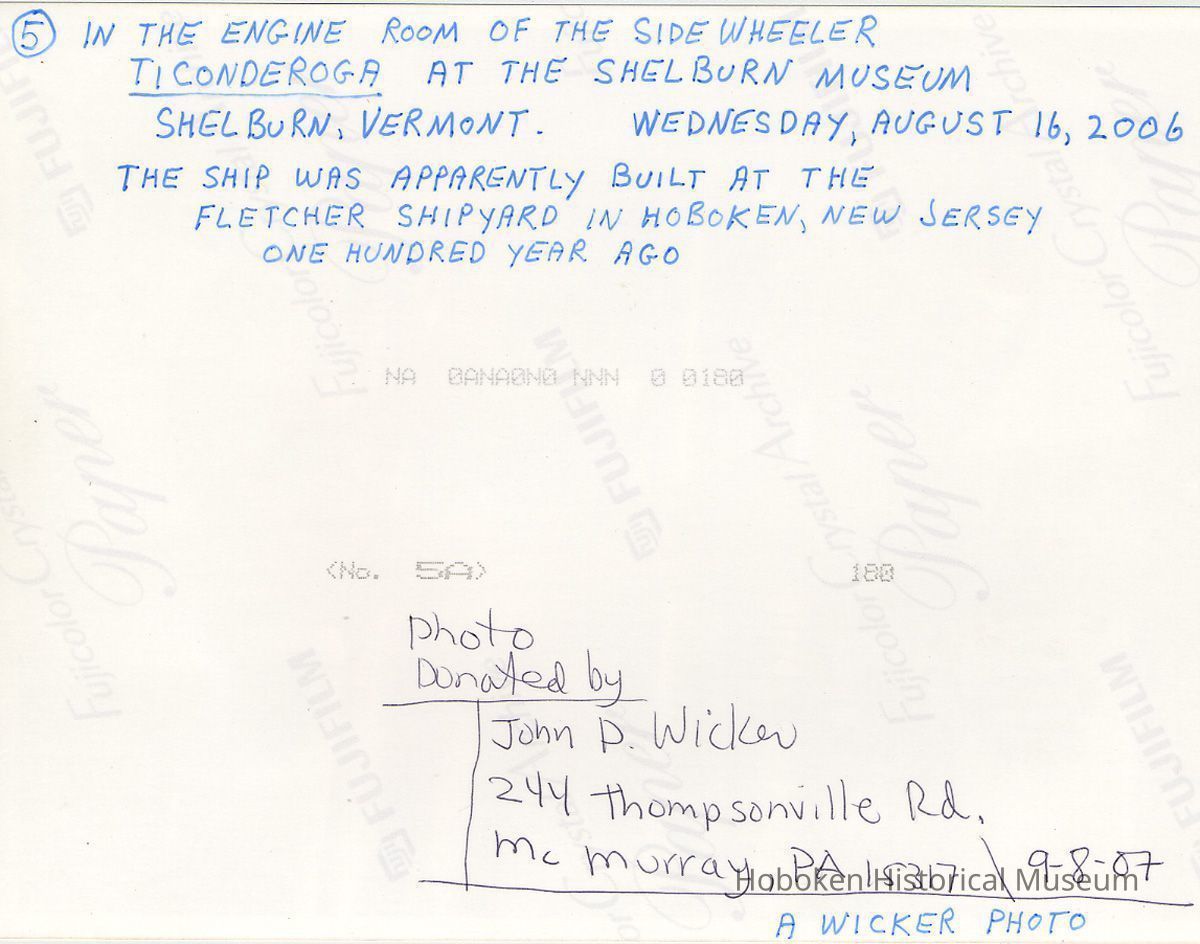 5 IN THE ENGINE ROOM OF THE SIDE WHEELER
TICONDEROGA AT THE SHELBURN MUSEUM
SHELBURN, VERMONT. WEDNESDAY, AUGUST 16, 2006
THE SHIP WAS APPARENTLY BUILT AT THE
FLETCHER SHIPYARD IN HOBOKEN, NEW JERSEY
ONE HUNDRED YEAR AGO
NA 0ANA0N0 NNN 0 0180
<No. 5A> 180
photo
Donated by
John D. Wicker
244 Thompsonville Rd.
Mc Murray, PA 15317 \ 9-8-07
Hoboken Historical Museum
A WICKER PHOTO
FUJIFILM
Fujicolor Crystal Archive
Paper